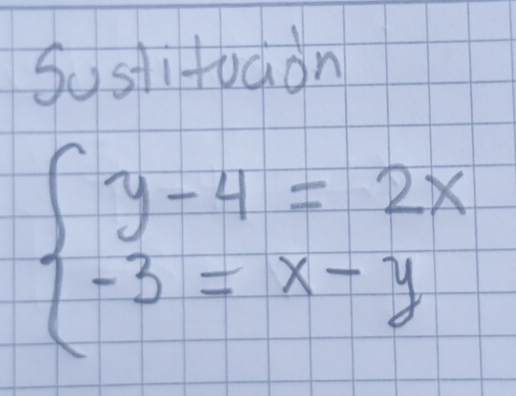 Sustitución
y - 4 = 2x
-3 = x - y